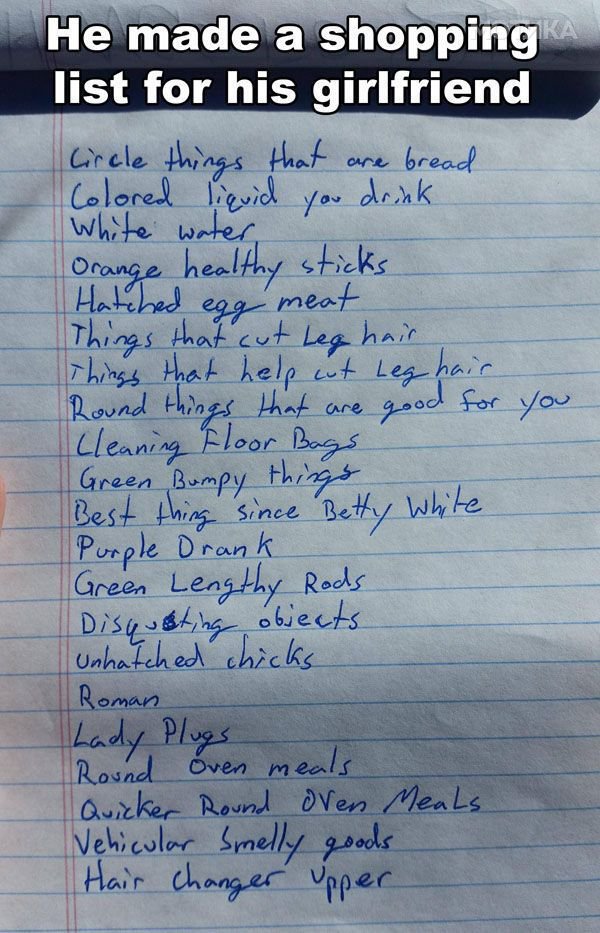 He made a shopping
list for his girlfriend
Circle things that are bread
Colored liquid you drink
White water
Orange healthy sticks
Hatched egg meat
Things that cut Leg hair
Things that help cut Leg hair
Round things that are good for you
Cleaning Floor Bags
Green Bumpy things
Best thing since Betty White
Purple Drank
Green Lengthy Rods
Disgusting objects
Unhatched chicks
Roman
Lady Plugs
Round Oven meals
Quicker Round Oven Meals
Vehicular Smelly goods
Hair Changer Upper